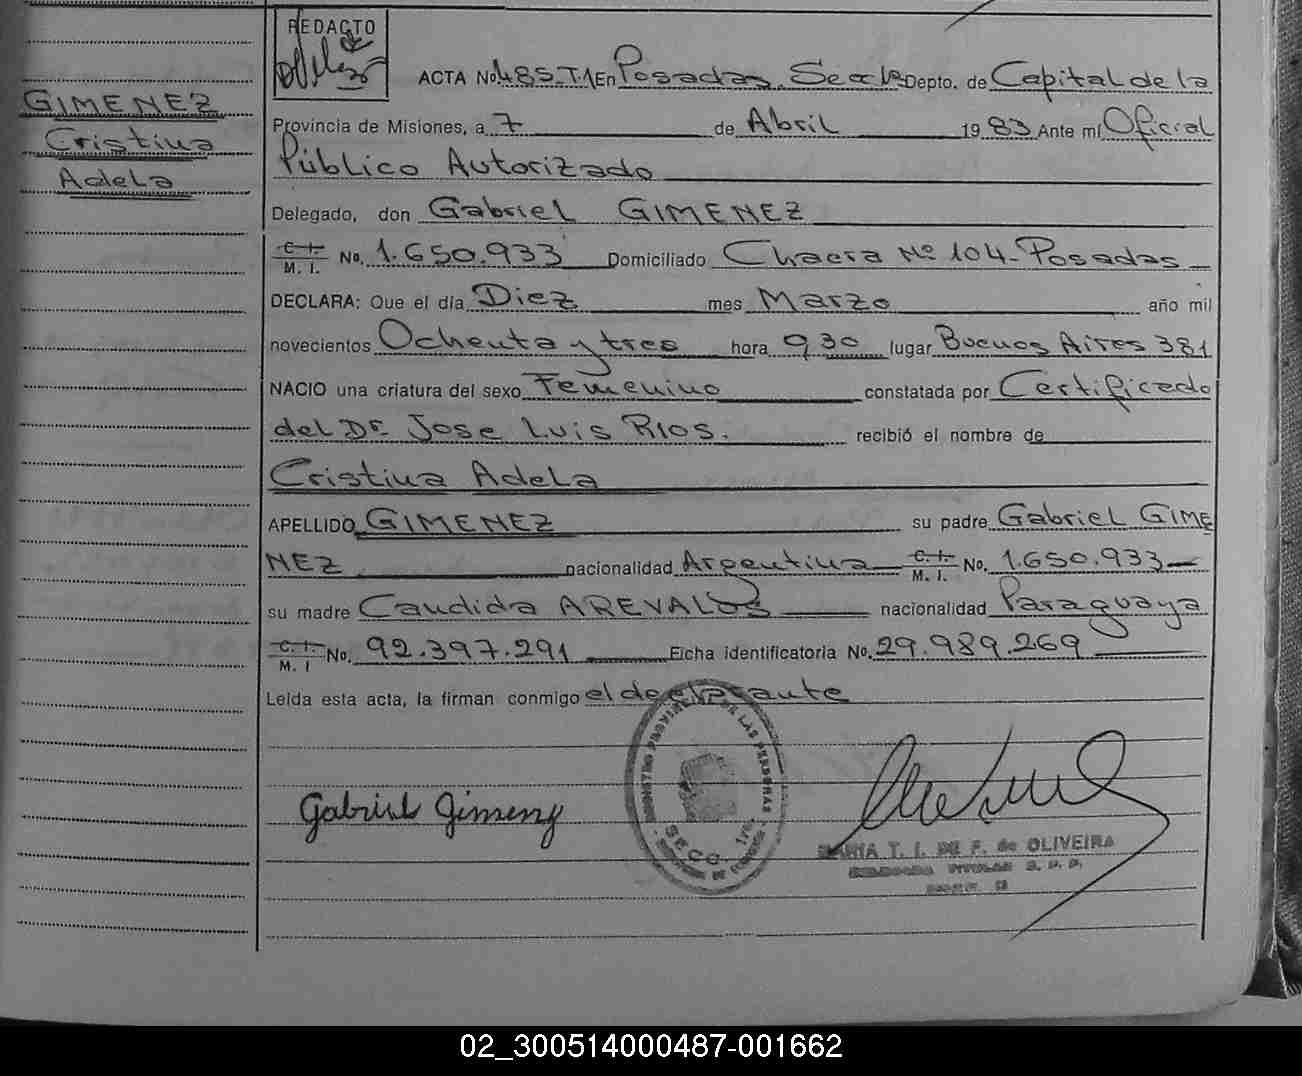 REDACTO
GIMENEZ
Cristina
Adela
ACTA No. 485.T.1 En Posadas. Secc 1a Depto. de Capital de la
Provincia de Misiones, a 7 de Abril 1983 Ante mí Oficial
Público Autorizado
Delegado, don Gabriel GIMENEZ
C. I. M. I. No. 1.650.933 Domiciliado Chacra Nº 104-Posadas
DECLARA: Que el día Diez mes Marzo año mil
novecientos Ochenta y tres hora 9,30 lugar Buenos Aires 381
NACIO una criatura del sexo Femenino constatada por Certificado
del Dr. Jose Luis RIOS. recibió el nombre de
Cristina Adela
APELLIDO GIMENEZ su padre Gabriel GIME
NEZ nacionalidad Argentina C. I. M. I. No. 1.650.933
su madre Candida AREVALOS nacionalidad Paraguaya
C. I. M. I No. 92.397.291 Ficha identificatoria No. 29.989.269
Leída esta acta, la firman conmigo el declarante
REGISTRO PROVINCIAL DE LAS PERSONAS
SECC. 1ra.
Gabriel Gimenez
MARIA T. I. DE F. de OLIVEIRA
DELEGADA TITULAR R. P. P.
02_300514000487-001662